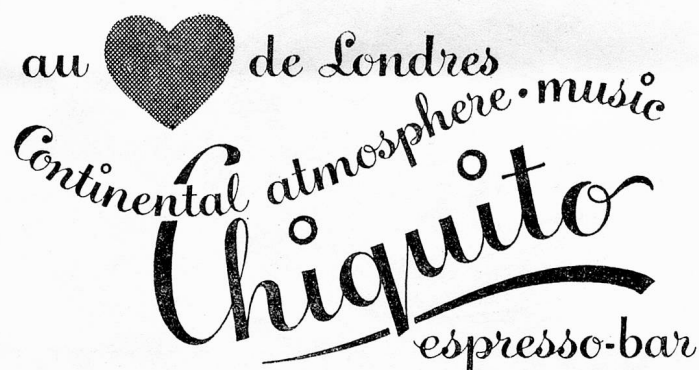 au de Londres
Continental atmosphere • music
Chiquito
espresso-bar